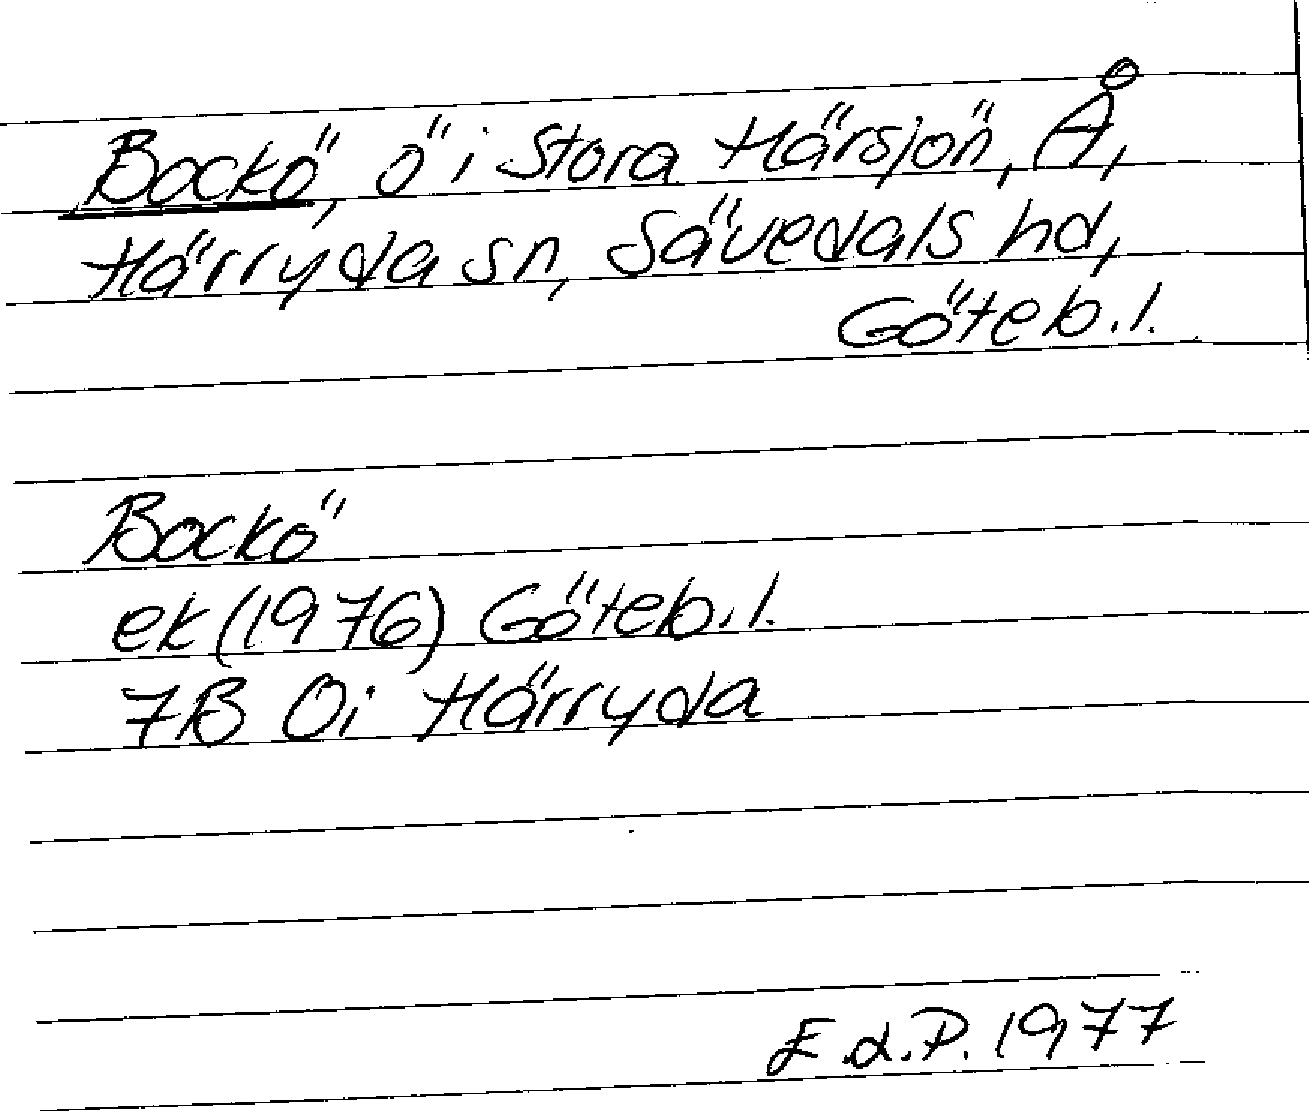 Bockö, ö i Stora Härsjön, Å,
Härryda sn, Sävedals hd,
Göteb. l.
Bockö
ek (1976) Göteb. l.
7B 0i Härryda
E d. P. 1977